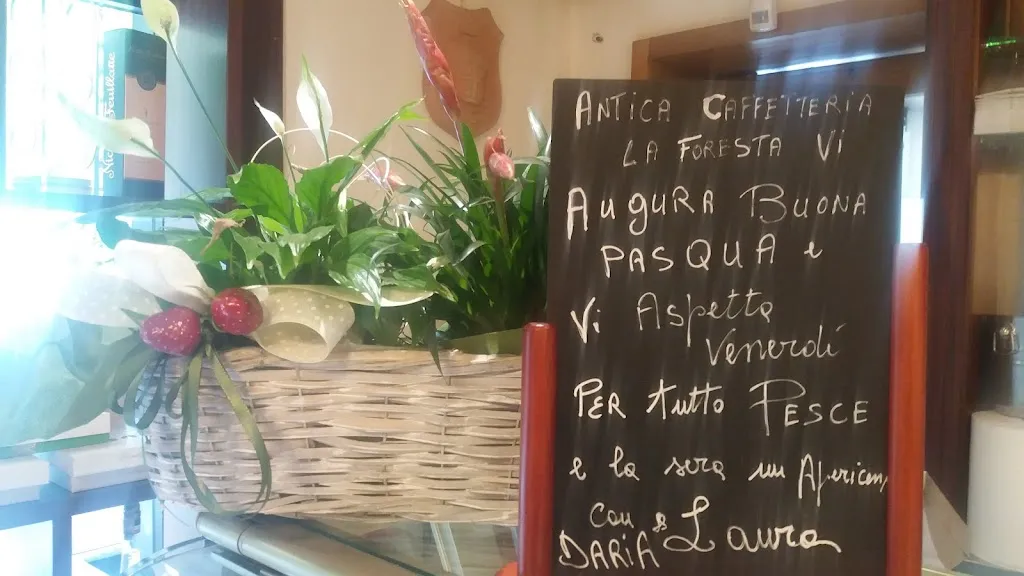 ANTICA CAFFETTERIA
LA FORESTA Vi
AUgURA BUONA
PASQUA e
Vi Aspetta
Venerdí
PER tutto PESCE
e la sera un Apericena
con e Laura
DARIA